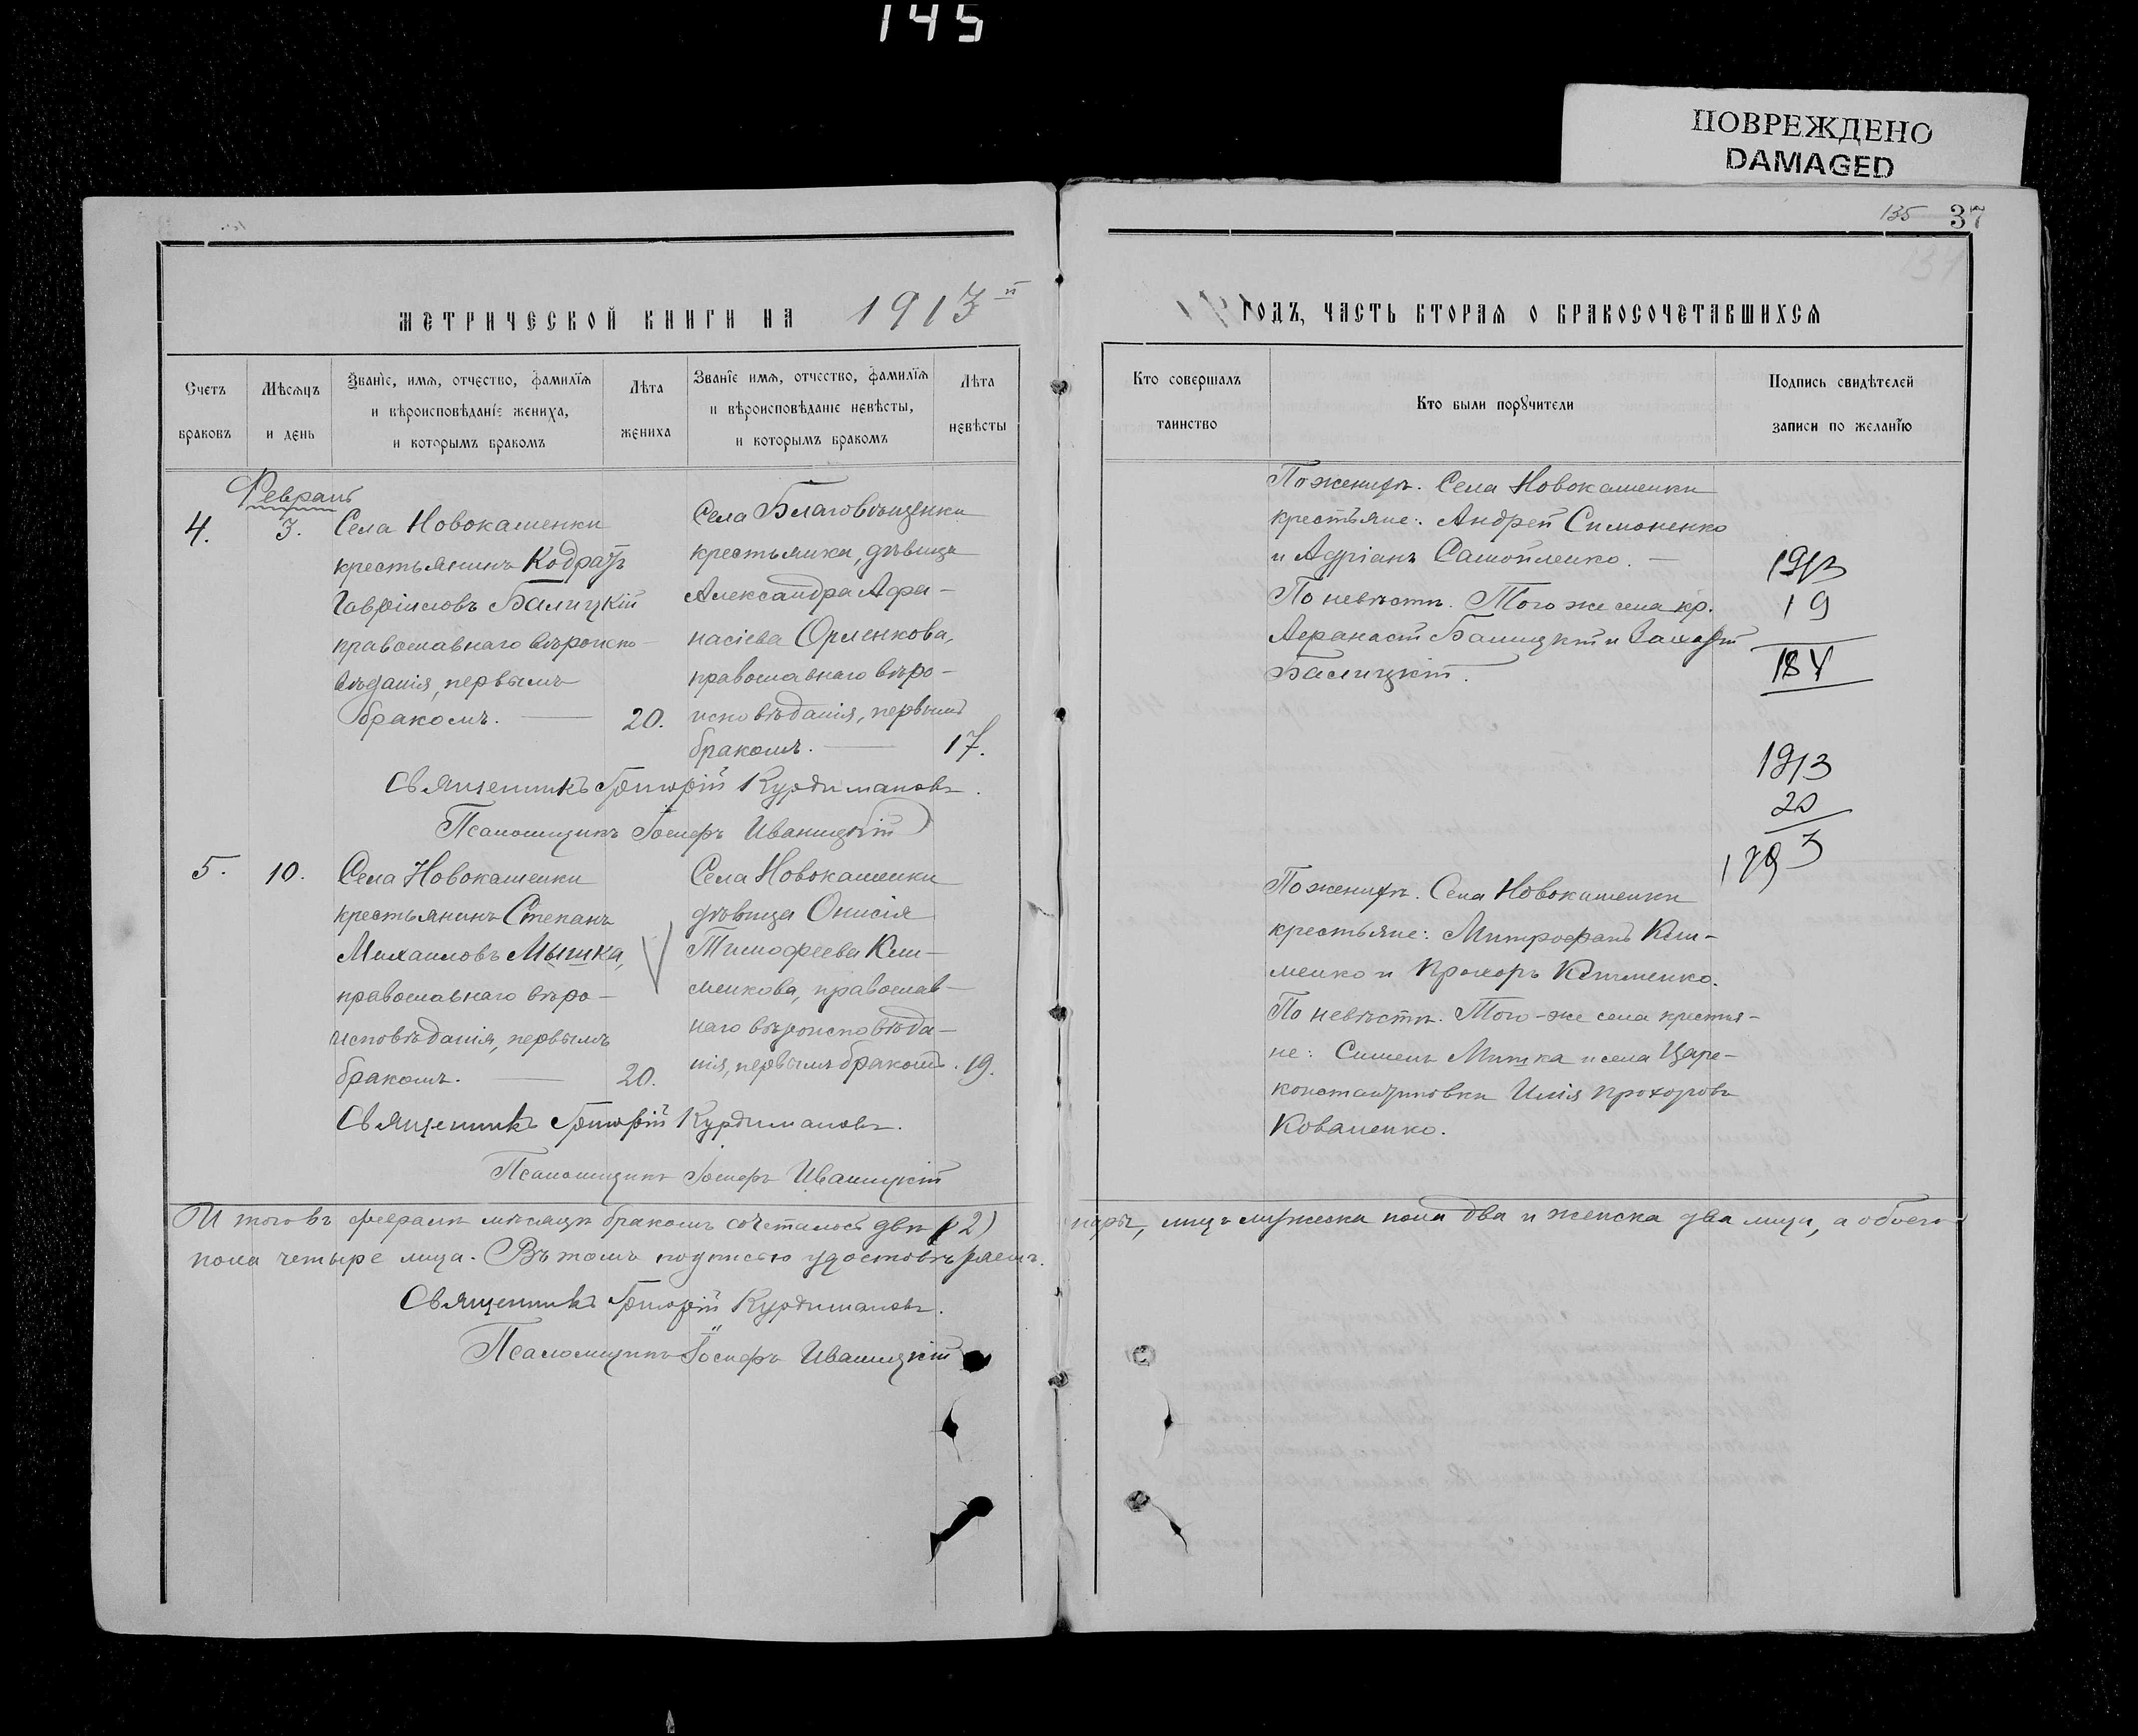 145
ПОВРЕЖДЕНО
DAMAGED
135 37
МЕТРИЧЕСКОЙ КНИГИ НА 1913й
Счетъ браковъ
Мѣсяцъ и день
Званіе, имя, отчество, фамилія
и вѣроисповѣданіе жениха,
и которымъ бракомъ
Лѣта жениха
Званіе имя, отчество, фамилія
и вѣроисповѣданіе невѣсты,
и которымъ бракомъ
Лѣта невѣсты
Февраль
4. 3.
Села Новокаменки
крестьянинъ Кодратъ
Гавріиловъ Балицкій
православнаго вѣроиспо-
вѣданія, первымъ
бракомъ. — 20.
Села Благовѣщенки
крестьянка, дѣвица
Александра Афа-
насіева Орленкова,
православнаго вѣро-
исповѣданія, первымъ
бракомъ. — 17.
Священникъ Григорій Курдимановъ.
Псаломщикъ Іосифъ Иваницкій
5. 10.
Села Новокаменки
крестьянинъ Степанъ
Михаиловъ Мышка,
православнаго вѣро-
исповѣданія, первымъ
бракомъ. — 20.
Села Новокаменки
дѣвица Онисія
Тимофеева Кли-
менкова, православ-
наго вѣроисповѣда-
нія, первымъ бракомъ. 19.
Священникъ Григорій Курдимановъ.
Псаломщикъ Іосифъ Иваницкій
Итого въ февралѣ мѣсяцѣ бракомъ сочеталось двѣ (2)
пола четыре лица. Въ томъ подписью удостовѣряемъ.
Священникъ Григорій Курдимановъ.
Псаломщикъ Іосифъ Иваницкій
ГОДЪ, ЧАСТЬ ВТОРАЯ О БРАКОСОЧЕТАВШИХСЯ
Кто совершалъ таинство
Кто были поручители
Подпись свидѣтелей
записи по желанію
По женихѣ. Села Новокаменки
крестьяне: Андрей Симоненко
и Адріанъ Самойленко. —
По невѣстѣ. Того же села кр.
Афанасій Балицкій и Захарій
Балицкій.
1913
19
1913
20
По женихѣ. Села Новокаменки
крестьяне: Митрофанъ Кли-
менко и Прохоръ Клименко.
По невѣстѣ. Того-же села крестья-
не: Симеонъ Мышка и села Царе-
константиновки Илія Прохоровъ
Коваленко.
пары, лицъ мужеска пола два и женска два лица, а обоего